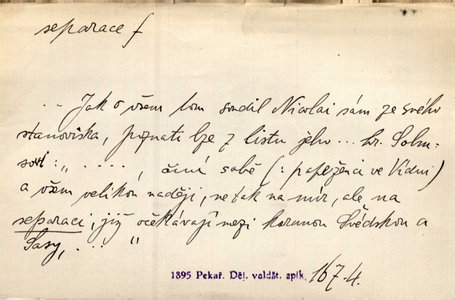 separace f
... Jak o všem tom soudil Nicolai sám ze svého
stanoviska, poznati lze z listu jeho ... hr. Solm-
sovi: „ ...., činí sobě (: papeženci ve Vídni)
a všem velikou naději, ne tak na mír, ale na
separaci, již očekávají mezi korunou Švédskou a
Sasy, ... "
1895 Pekař. Děj. valdšt. spik. 167.4.